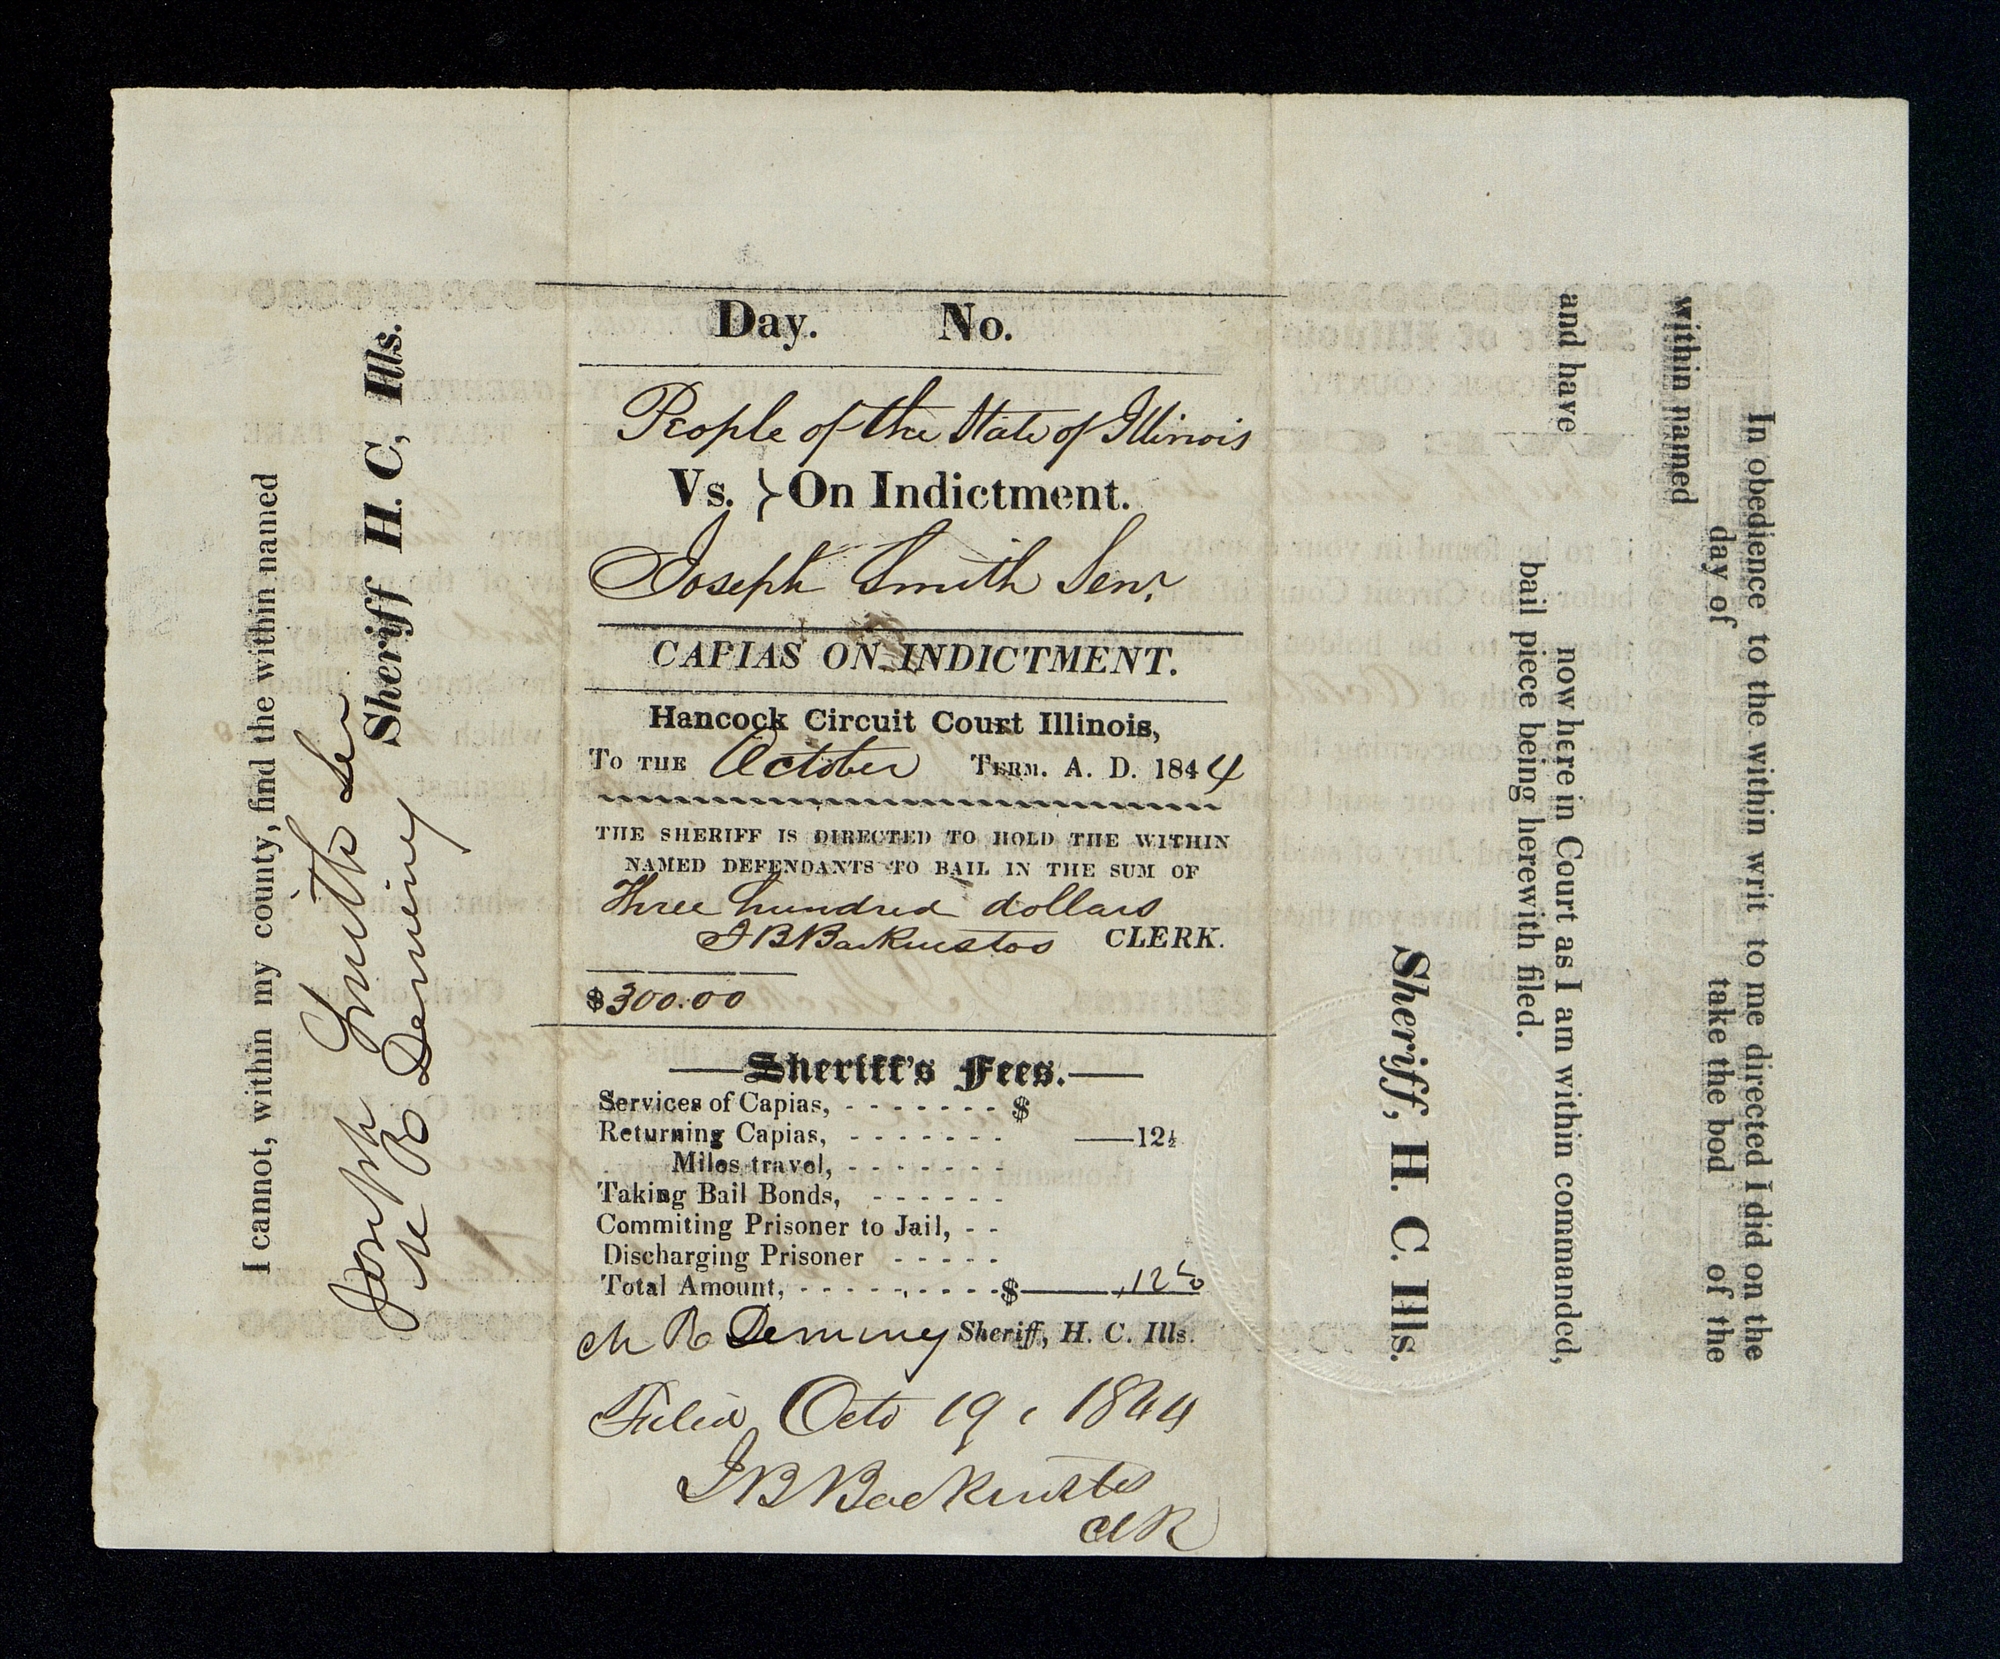 I cannot, within my county, find the within named
Joseph Smith Sen
Sheriff H. C, Ills.
M R Deming
Day. No.
People of the State of Illinois
Vs. } On Indictment.
Joseph Smith Senr
CAPIAS ON INDICTMENT.
Hancock Circuit Court Illinois,
TO THE October TERM. A. D. 1844
THE SHERIFF IS DIRECTED TO HOLD THE WITHIN
NAMED DEFENDANTS TO BAIL IN THE SUM OF
Three hundred dollars
J B Backenstos CLERK.
$300.00
Sheriff's Fees.
Services of Capias, - - - - - - - $
Returning Capias, - - - - - - - 12½
Miles travel, - - - - - - -
Taking Bail Bonds, - - - - - -
Commiting Prisoner to Jail, - -
Discharging Prisoner - - - - -
Total Amount, - - - - - - - - - $ ,12½
M R Deming Sheriff, H. C. Ills.
Filed Octo 19, 1844
J B Backenstos
Clk
In obedience to the within writ to me directed I did on the
day of take the bod of the
within named
and have now here in Court as I am within commanded,
bail piece being herewith filed.
Sheriff, H. C. Ills.